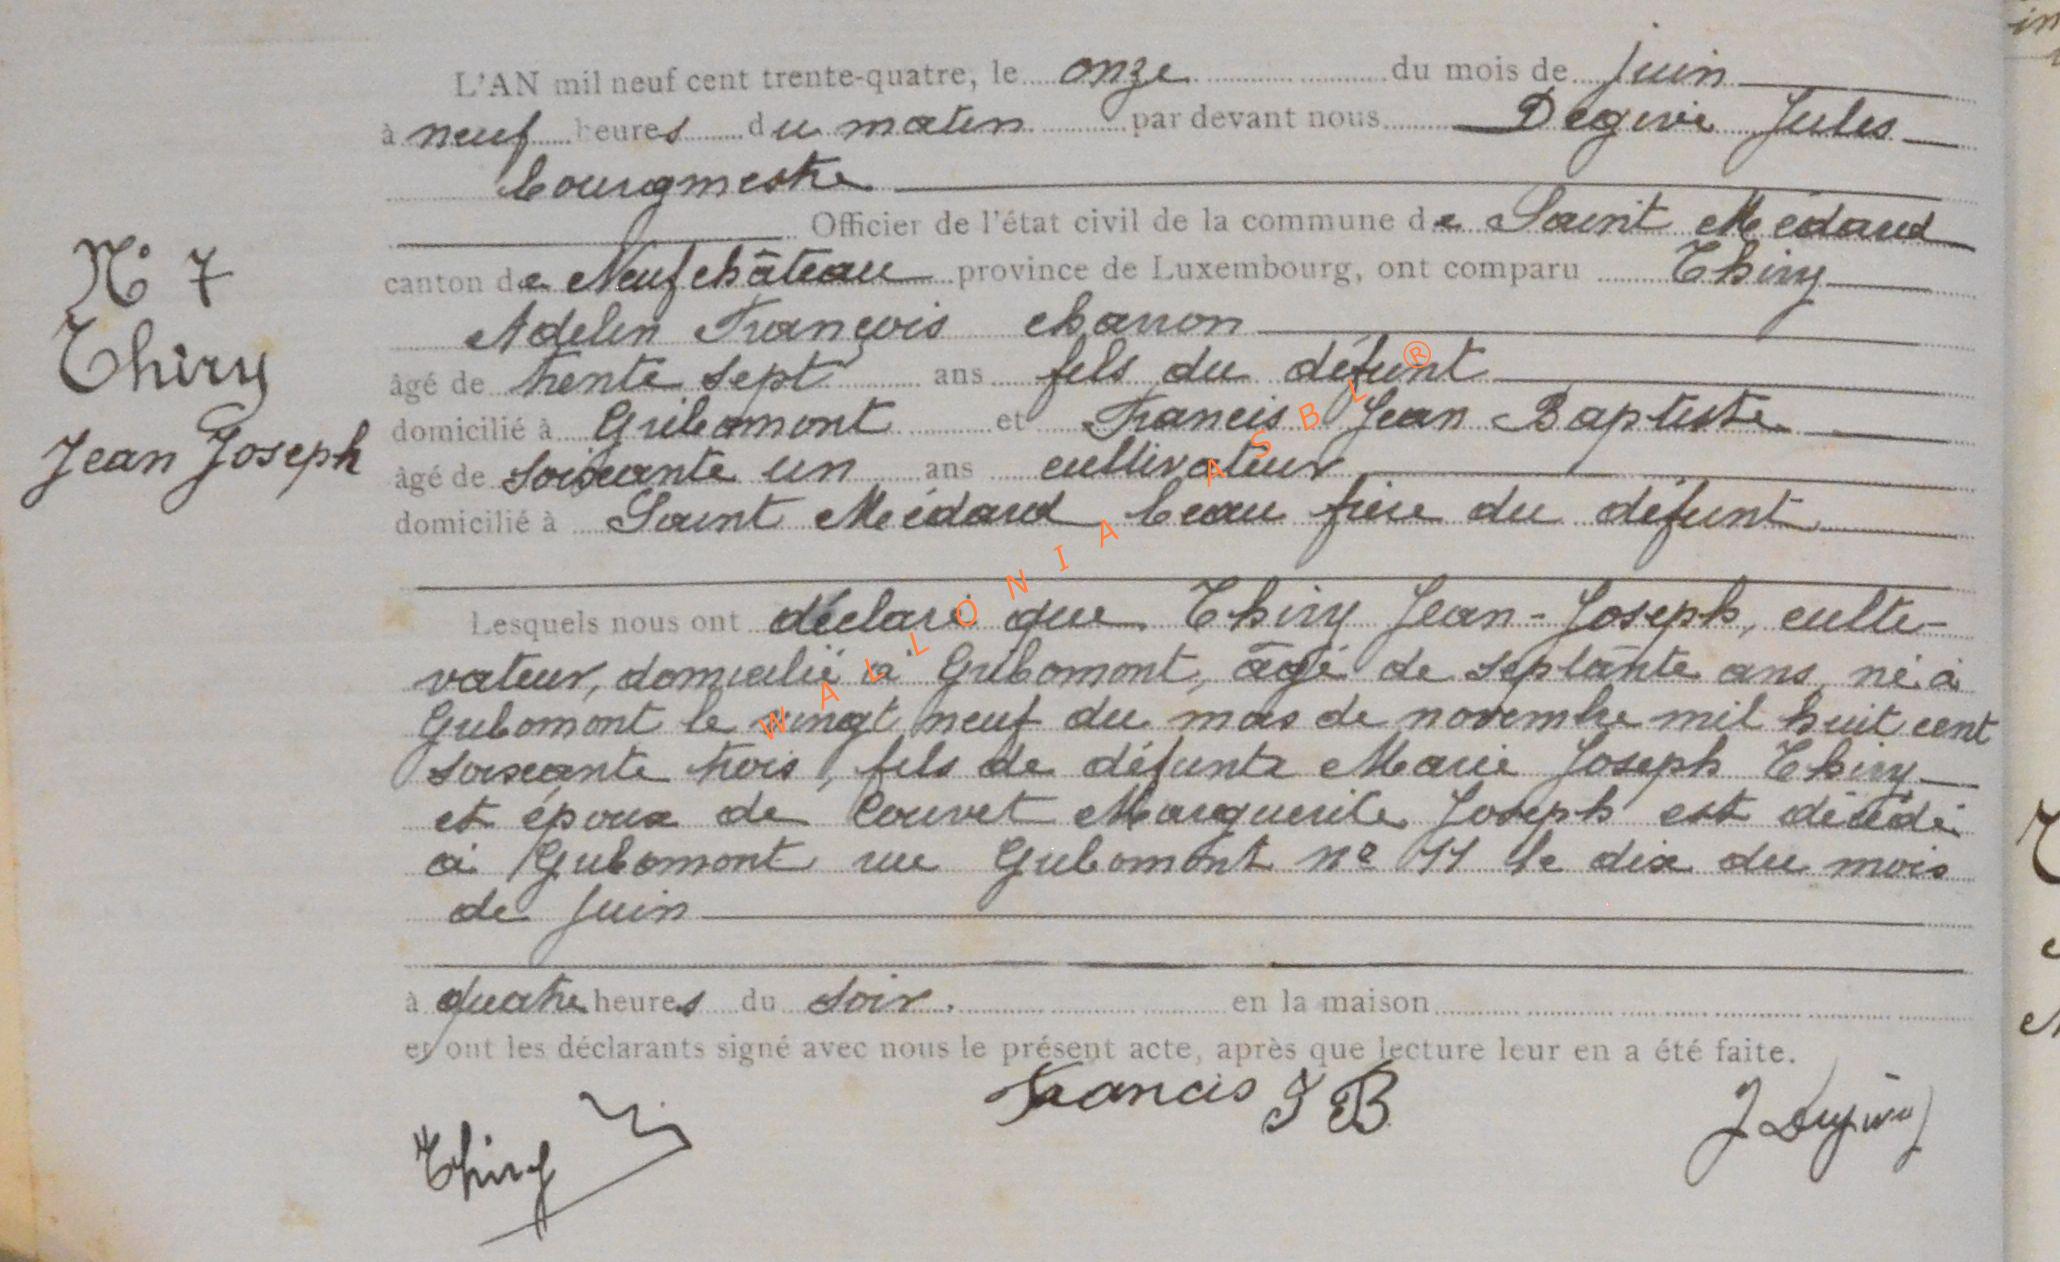 L'AN mil neuf cent trente-quatre, le onze du mois de juin
à neuf heures du matin par devant nous Degive Jules
bourgmestre
Officier de l'état civil de la commune de Saint Médard
canton de Neufchâteau province de Luxembourg, ont comparu Thiry
Adelin François charron
âgé de trente sept ans fils du défunt
domicilié à Gribomont et Francis Jean Baptiste
âgé de soixante un ans cultivateur
domicilié à Saint Médard beau frère du défunt
N° 7
Thiry
Jean Joseph
Lesquels nous ont déclaré que Thiry Jean-Joseph, culti-
vateur, domicilié à Gribomont, âgé de septante ans, né à
Gribomont le vingt neuf du mois de novembre mil huit cent
soixante trois, fils de défunte Marie Joseph Thiry
et époux de Couvet Marguerite Joseph est décédé
à Gribomont rue Gribomont n° 11 le dix du mois
de juin
à quatre heures du soir. en la maison
et ont les déclarants signé avec nous le présent acte, après que lecture leur en a été faite.
Thiry
Francis J B
J Degive
WALLONIA ASBL ®